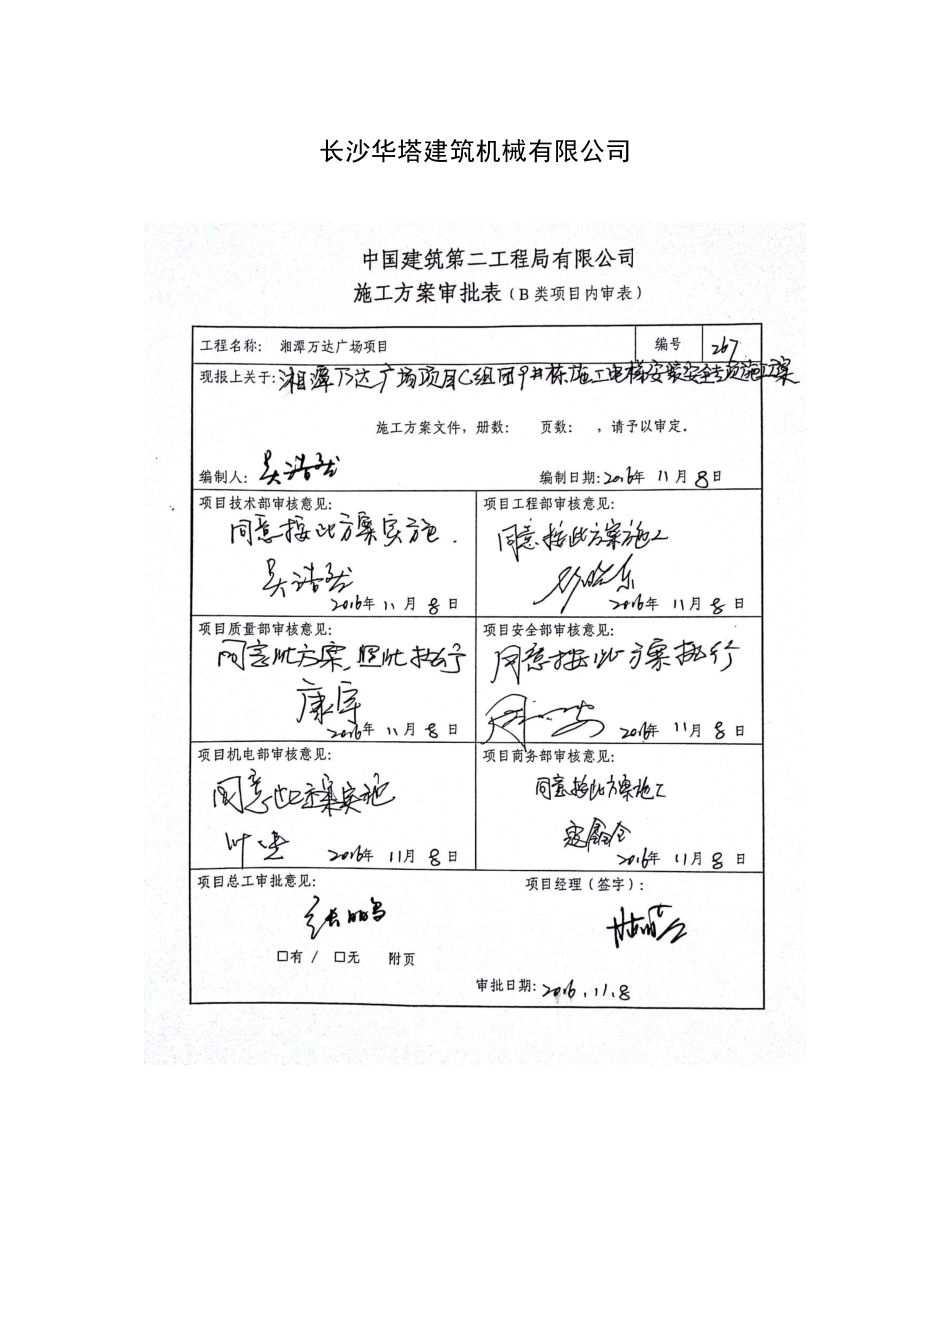 长沙华塔建筑机械有限公司
中国建筑第二工程局有限公司
施工方案审批表（B 类项目内审表）
工程名称： 湘潭万达广场项目 编号 267
现报上关于：湘潭万达广场项目C组团9#栋施工电梯安装安全专项施工方案
施工方案文件，册数： 页数： ，请予以审定。
编制人： 吴浩 编制日期：2016年 11 月 8 日
项目技术部审核意见： 项目工程部审核意见：
同意按此方案实施. 同意按此方案施工
吴浩
2016年 11 月 8 日 2016年 11 月 8 日
项目质量部审核意见： 项目安全部审核意见：
同意此方案，照此执行 同意按此方案执行
康宇
2016年 11 月 8 日 2016年 11 月 8 日
项目机电部审核意见： 项目商务部审核意见：
同意此方案实施 同意按此方案施工
叶
2016年 11月 8 日 2016年 11 月 8 日
项目总工审批意见： 项目经理（签字）：
张鹏
□有 / □无 附页
审批日期：2016.11.8